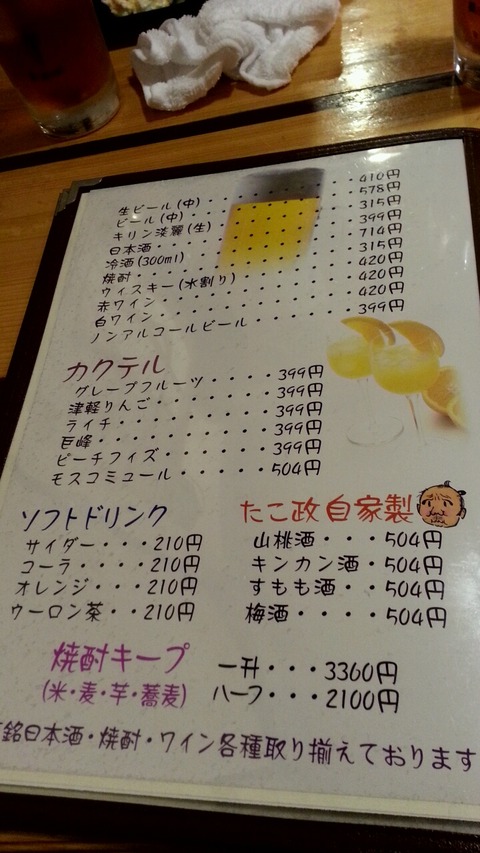 生ビール(中)・・・・・・・・・・410円
ビール(中)・・・・・・・・・・578円
キリン淡麗(生)・・・・・・・・・315円
日本酒・・・・・・・・・・・・399円
冷酒(300ml)・・・・・・・・・・714円
焼酎・・・・・・・・・・・・・315円
ウィスキー(水割り)・・・・・・・420円
赤ワイン・・・・・・・・・・・420円
白ワイン・・・・・・・・・・・420円
ノンアルコールビール・・・・・・399円
カクテル
グレープフルーツ・・・・399円
津軽りんご・・・・・・・399円
ライチ・・・・・・・・・399円
巨峰・・・・・・・・・・399円
ピーチフィズ・・・・・・399円
モスコミュール・・・・・504円
ソフトドリンク
サイダー・・・210円
コーラ・・・・210円
オレンジ・・・210円
ウーロン茶・・210円
たこ政自家製
山桃酒・・504円
キンカン酒・504円
すもも酒・・504円
梅酒・・・・504円
焼酎キープ
(米・麦・芋・蕎麦)
一升・・・3360円
ハーフ・・・2100円
銘日本酒・焼酎・ワイン各種取り揃えております